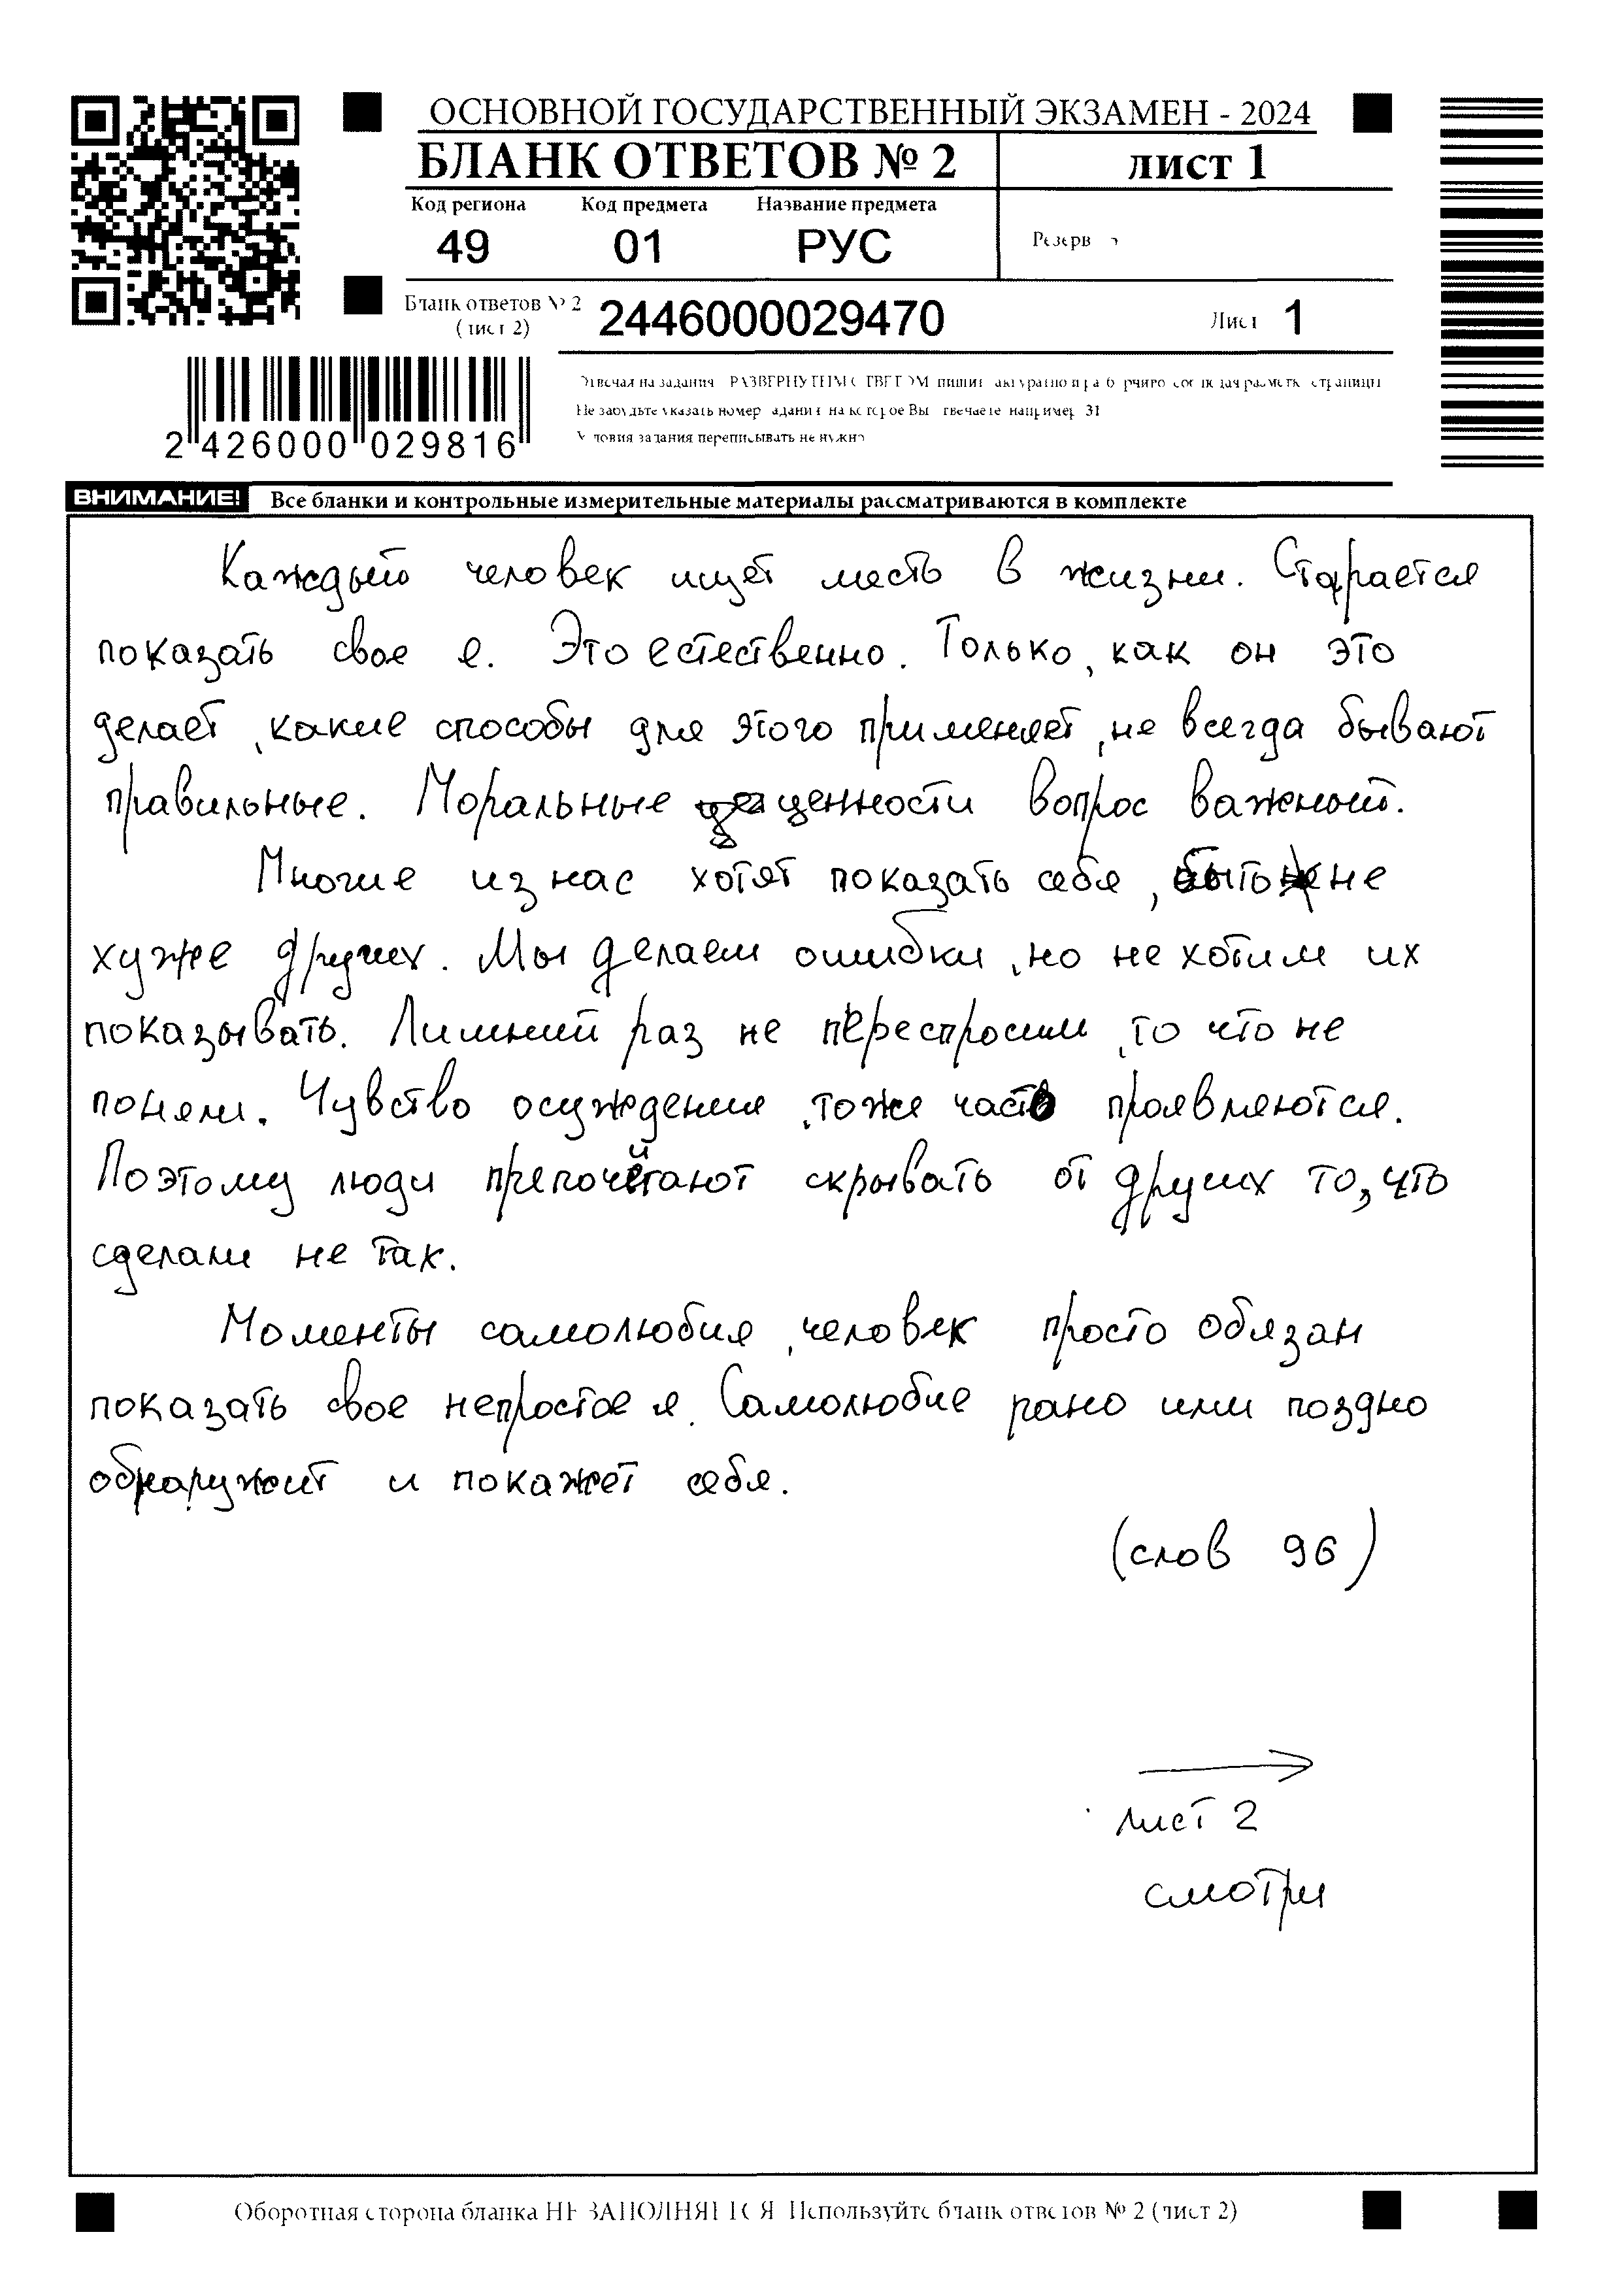 ОСНОВНОЙ ГОСУДАРСТВЕННЫЙ ЭКЗАМЕН - 2024
БЛАНК ОТВЕТОВ № 2
лист 1
Код региона Код предмета Название предмета
49 01 РУС
Резерв
Бланк ответов № 2
(лист 2)
2446000029470
Лист 1
2 426000 029816
Не забудьте указать номер задания на которое Вы отвечаете например 31
Условия задания переписывать не нужно
ВНИМАНИЕ! Все бланки и контрольные измерительные материалы рассматриваются в комплекте
Каждый человек ищет месть в жизни. Старается
показать свое я. Это естественно. Только, как он это
делает, какие способы для этого применяет, не всегда бывают
правильные. Моральные ценности вопрос важный.
Многие из нас хотят показать себя, что не
хуже других. Мы делаем ошибки, но не хотим их
показывать. Лишний раз не переспросим, то что не
поняли. Чувство осуждения, тоже часто проявляются.
Поэтому люди препочитают скрывать от других то, что
сделали не так.
Моменты самолюбия, человек просто обязан
показать свое непростое я. Самолюбие рано или поздно
обнаружит и покажет себя.
(слов 96)
лист 2
смотри
Оборотная сторона бланка НЕ ЗАПОЛНЯЕТСЯ Используйте бланк ответов № 2 (лист 2)